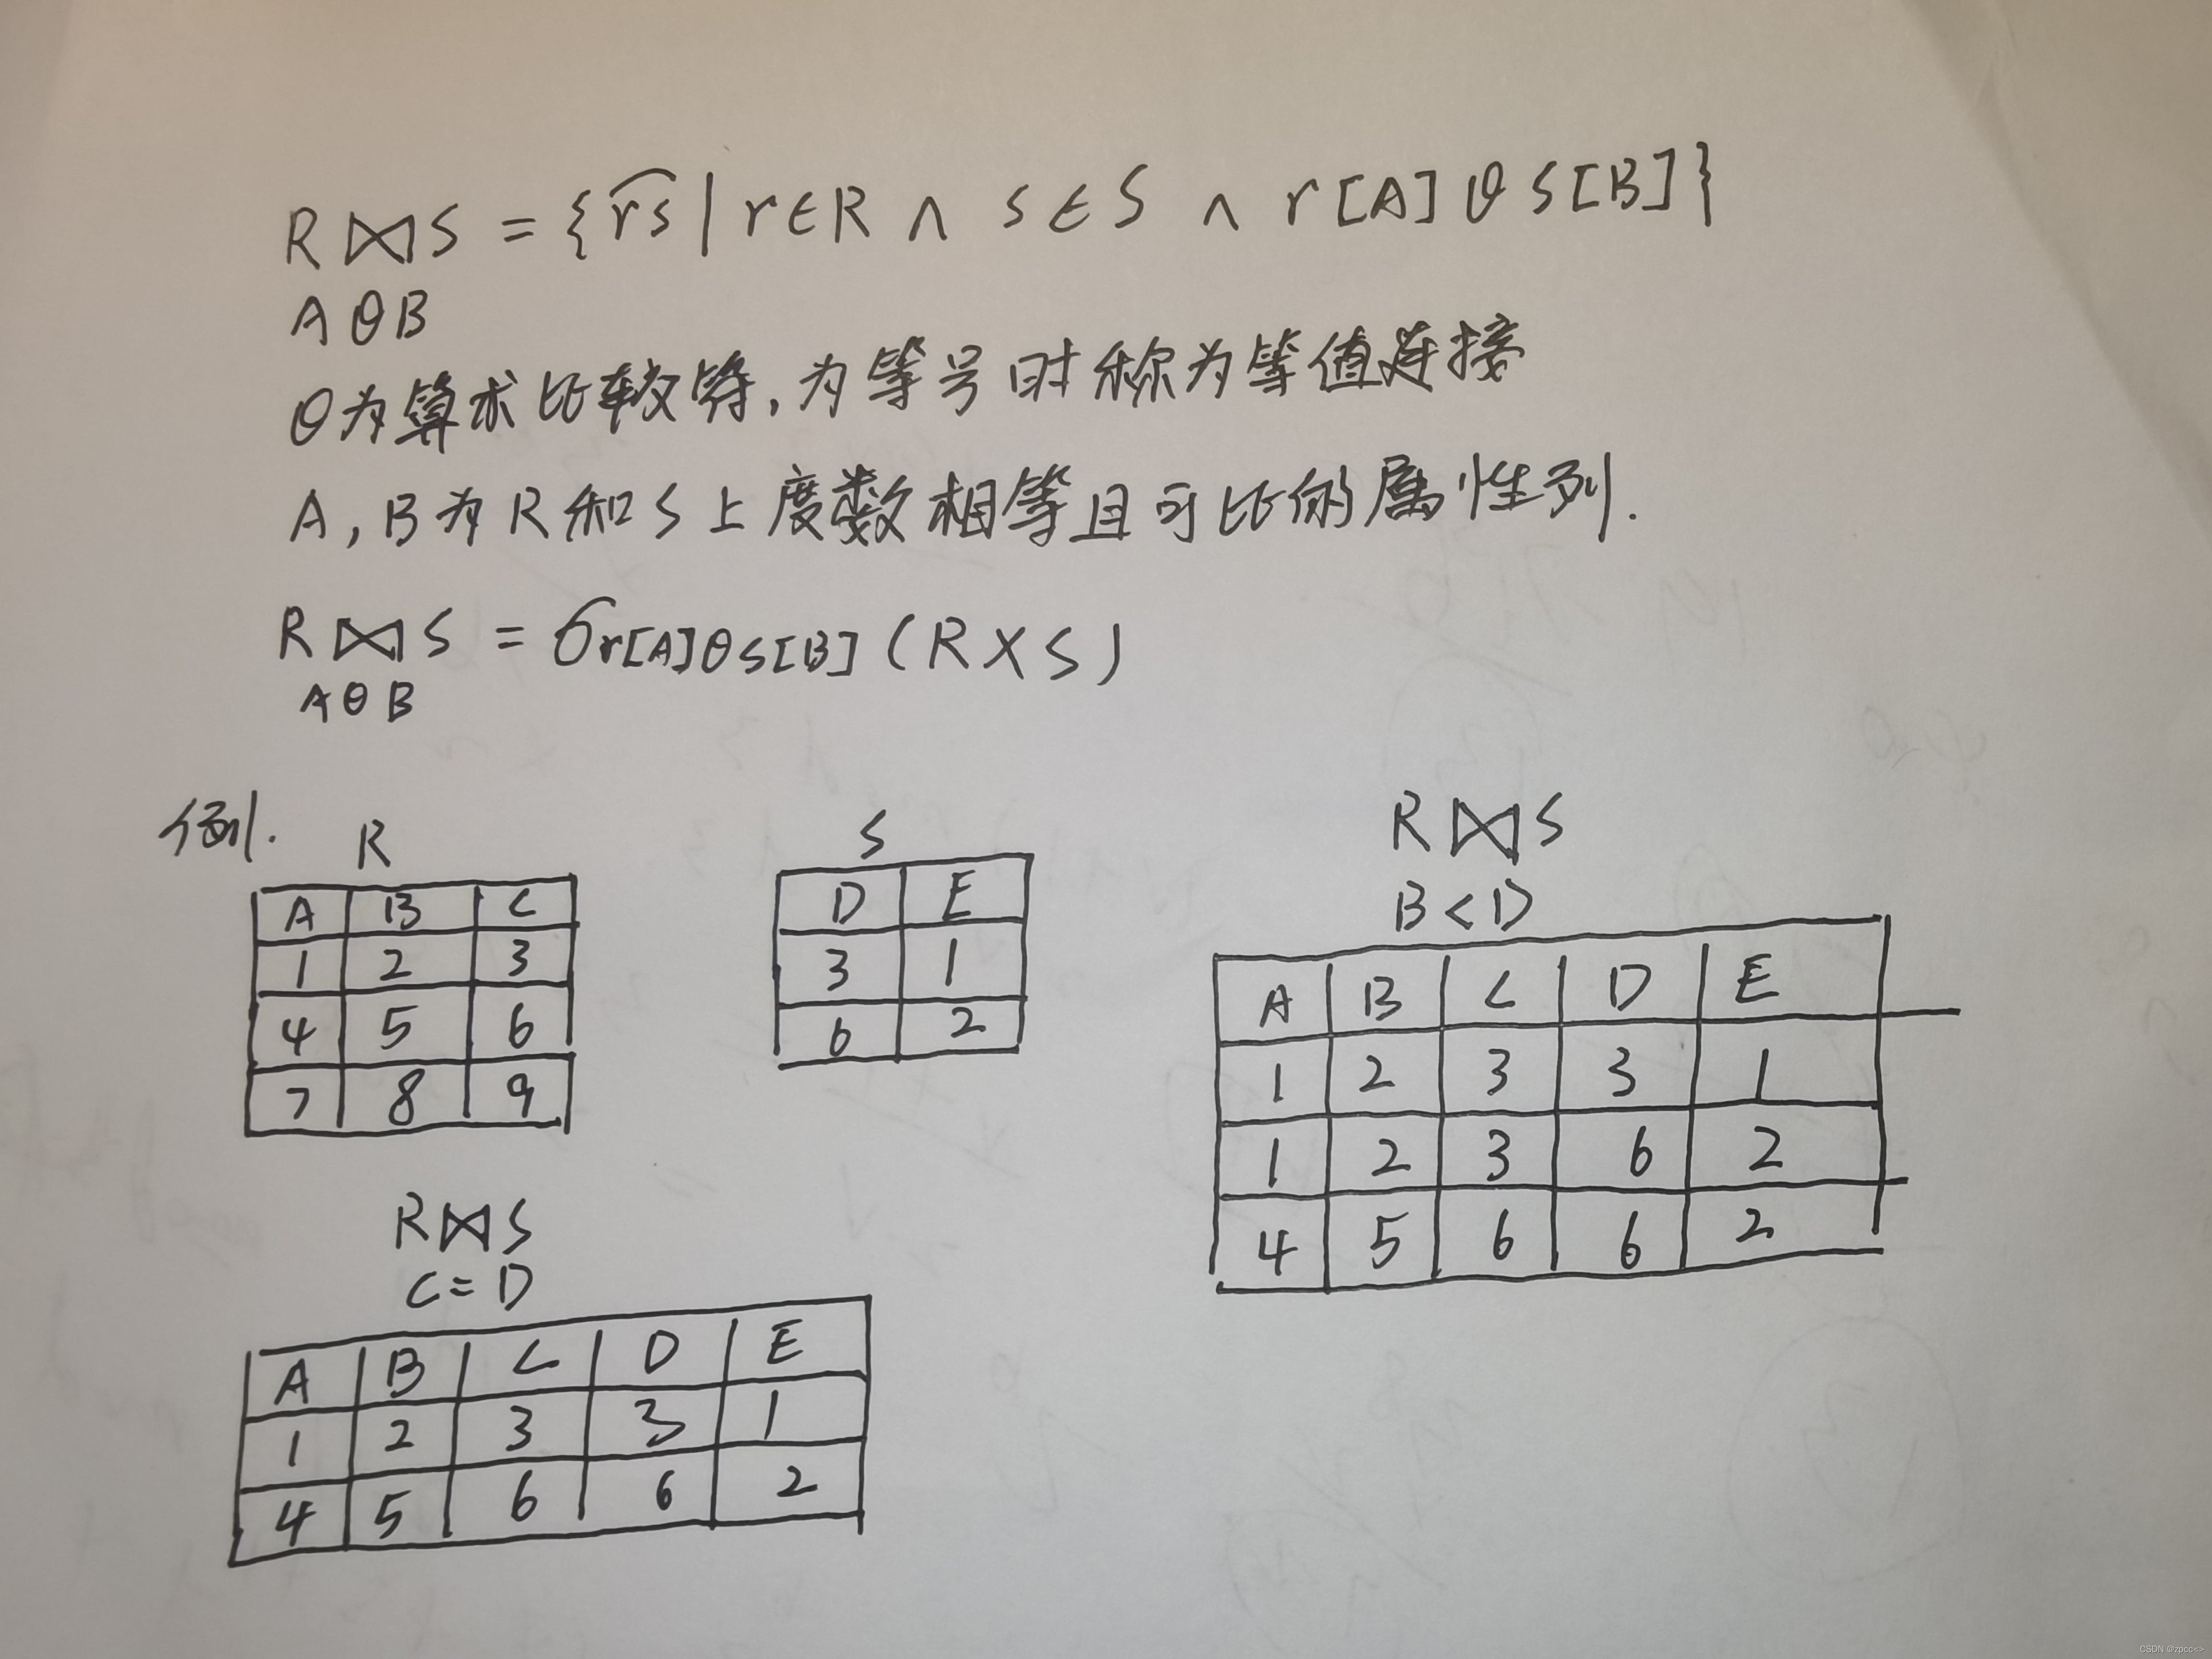 R⋈S = {r͡s | r∈R ∧ s∈S ∧ r[A] θ S[B]}
AθB
θ为算术比较符,为等号时称为等值连接
A,B为R和S上度数相等且可比的属性列.
R⋈S = σr[A]θS[B] (R×S)
AθB
例.
R
A B C
1 2 3
4 5 6
7 8 9
S
D E
3 1
6 2
R⋈S
B<D
A B C D E
1 2 3 3 1
1 2 3 6 2
4 5 6 6 2
R⋈S
C=D
A B C D E
1 2 3 3 1
4 5 6 6 2
CSDN @zpcc<>